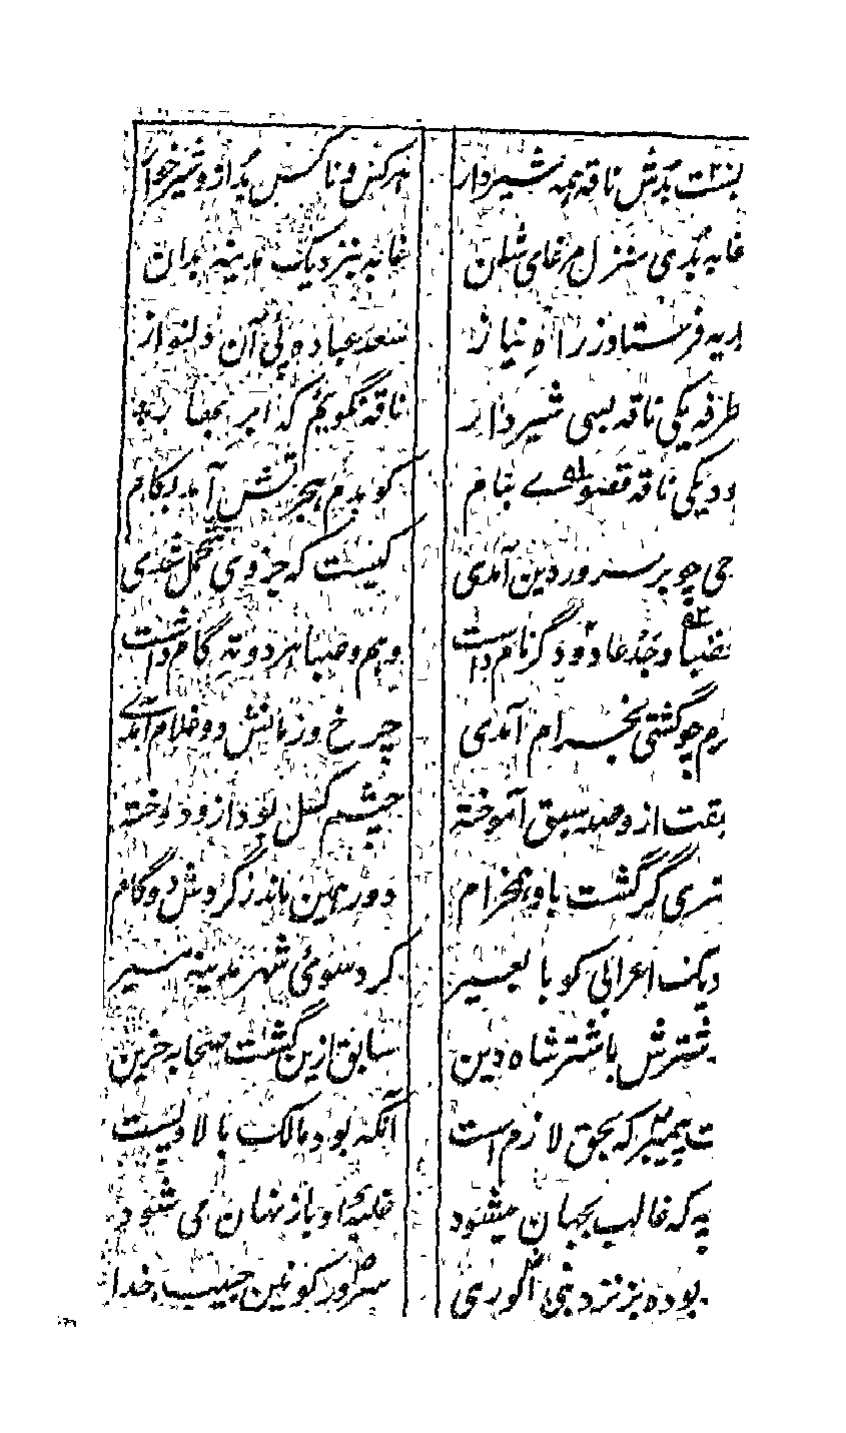 بُدش ناقه همه شیردار هر کس و ناکس بُد ازو شیر خوار
غابه بُدی منزل مرعای شان غابه بنزدیک مدینه بدان
فرستاد ز راهِ نیاز سعد عباده پئی آن دلنواز
طرفه یکی ناقه بسی شیردار ناقه نگویم که ابر بهار
یکی ناقه قصوای بنام کو بدم هجرتش آمد بکام
چو بر سرور دین آمدی کیست که جز وی متحمل شدی
وجدعا دو دگر نام داشت وهم وصبا هر دو ته گام داشت
چو گشتی بخرام آمدی چرخ و زمانش دو غلام آمدی
از وصد سبق آموخته چشم کسل بود ازو دوخته
گر گشت باو همخرام دور همین ماند ز گردش دو گام
یک اعرابی کو با بعیر کرد سوئی شهر مدینه مسیر
شترش با شتر شاه دین سابق ازین گشت صحابه حزین
پیمبر که بحق لازم است آنکه بود مالک بالا و پست
که غالب بجهان میشود غلبهٔ او باز نهان می شود
بوده بز نزد نبی الوری سرور کونین حبیب خدا